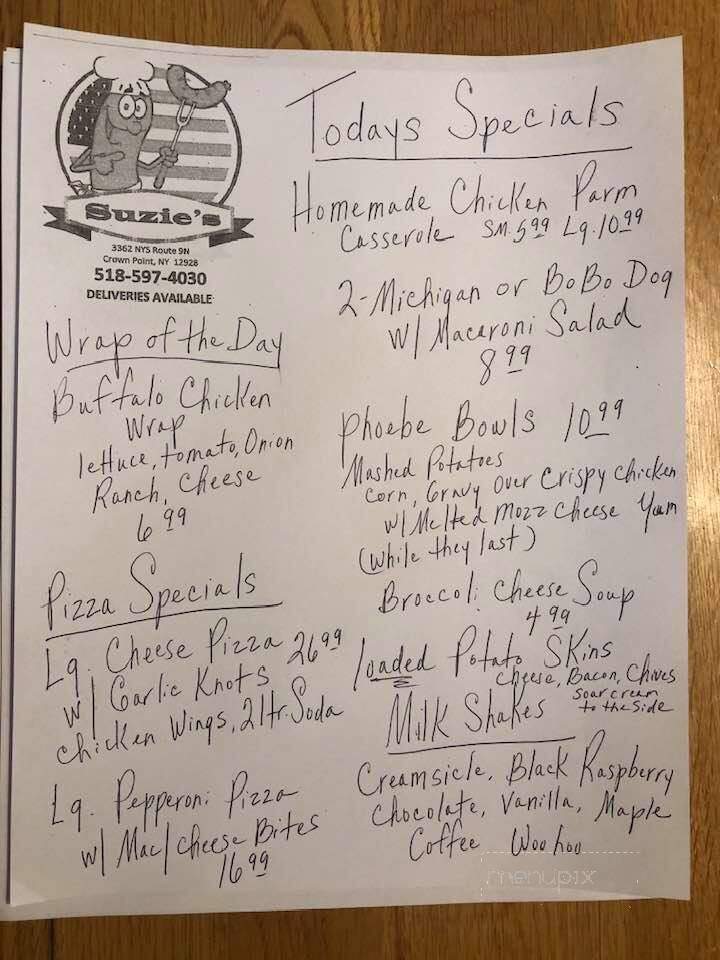 Suzie's
3362 NYS Route 9N
Crown Point, NY 12928
518-597-4030
DELIVERIES AVAILABLE
Wrap of the Day
Buffalo Chicken
Wrap
lettuce, tomato, Onion
Ranch, Cheese
6.99
Pizza Specials
Lg. Cheese Pizza 26.99
w/ Garlic Knots
chicken Wings, 2 ltr. Soda
Lg. Pepperoni Pizza
w/ Mac/cheese Bites
16.99
Todays Specials
Homemade Chicken Parm
Casserole SM. 5.99 Lg. 10.99
2-Michigan or BoBo Dog
w/ Macaroni Salad
8.99
Phoebe Bowls 10.99
Mashed Potatoes
Corn, Gravy over Crispy Chicken
w/ Melted Mozz Cheese Yum
(while they last)
Broccoli Cheese Soup
4.99
loaded Potato Skins
Cheese, Bacon, Chives
Sour cream
to the Side
Milk Shakes
Creamsicle, Black Raspberry
Chocolate, Vanilla, Maple
Coffee Woo hoo
menupix